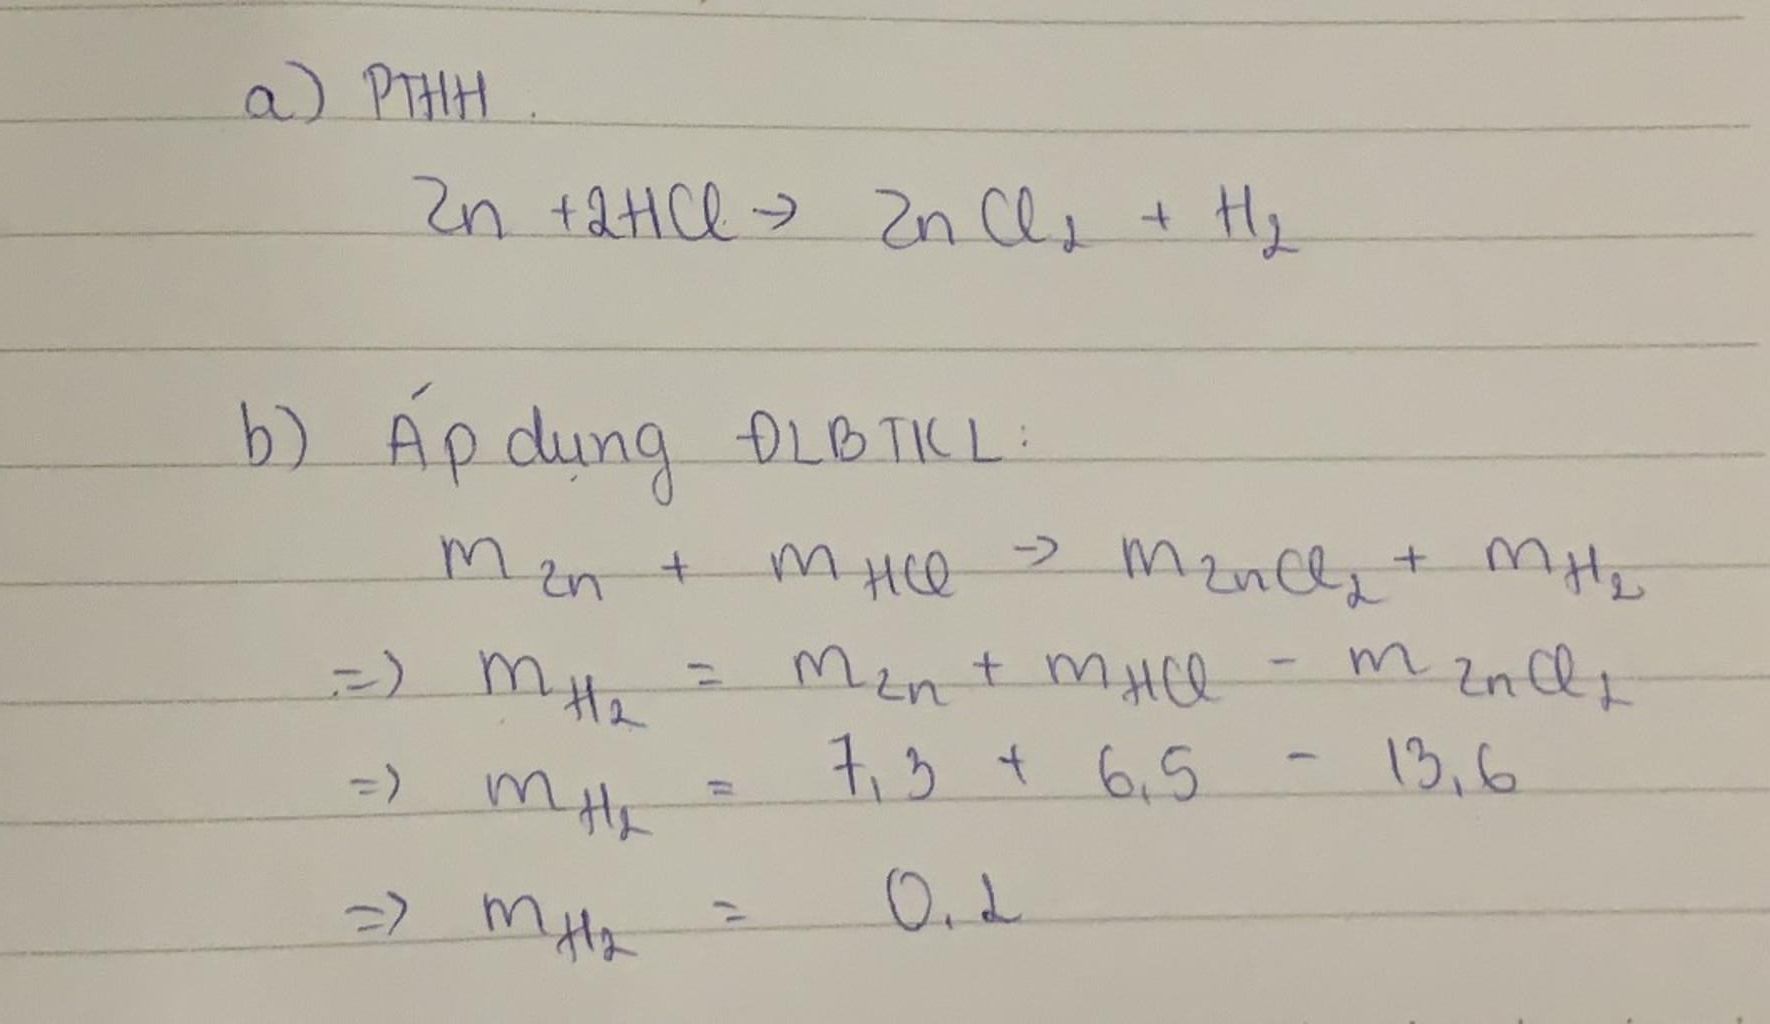 a) PTHH.
Zn + 2HCl → ZnCl₂ + H₂
b) Áp dụng ĐLBTKL:
m Zn + m HCl → m ZnCl₂ + m H₂
=> m H₂ = m Zn + m HCl - m ZnCl₂
=> m H₂ = 7,3 + 6,5 - 13,6
=> m H₂ = 0,2